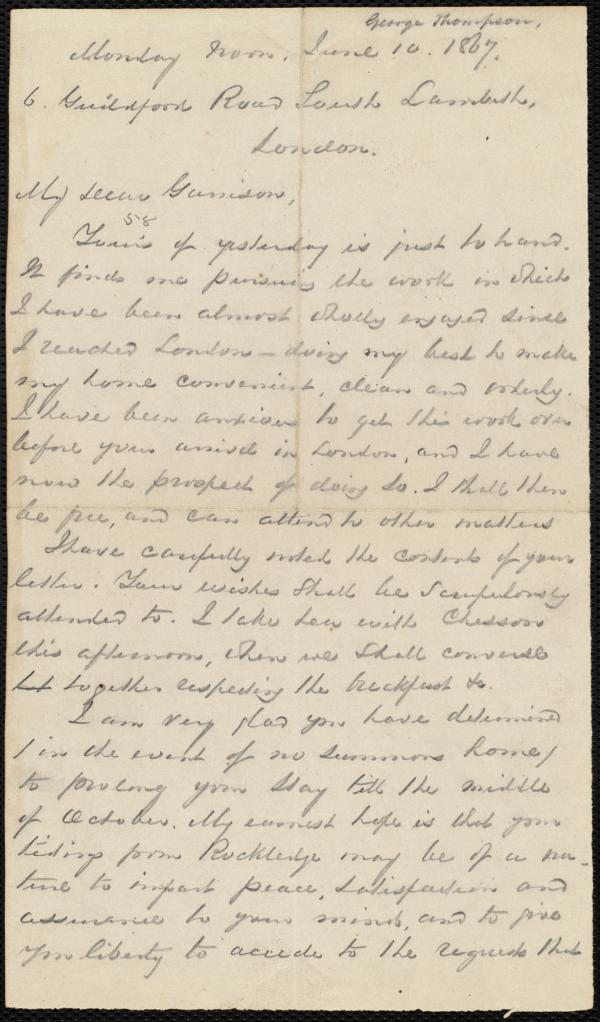 George Thompson,
Monday Noon, June 10. 1867.
6. Guildford Road South Lambeth,
London.
My dear Garrison,
58
Yours of yesterday is just to hand.
It finds me pursuing the work in which
I have been almost wholly engaged since
I reached London – doing my best to make
my home convenient, clean and orderly.
I have been anxious to get this work over
before your arrival in London, and I have
now the prospect of doing so. I shall then
be free, and can attend to other matters
I have carefully noted the contents of your
letter. Your wishes shall be scrupulously
attended to. I take tea with Chesson
this afternoon, when we shall converse
together respecting the breakfast &c.
I am very glad you have determined
(in the event of no summons home)
to prolong your stay till the middle
of October. My earnest hope is that your
tidings from Rockledge may be of a na-
ture to impart peace, satisfaction and
assurance to your mind, and to give
you liberty to accede to the requests that